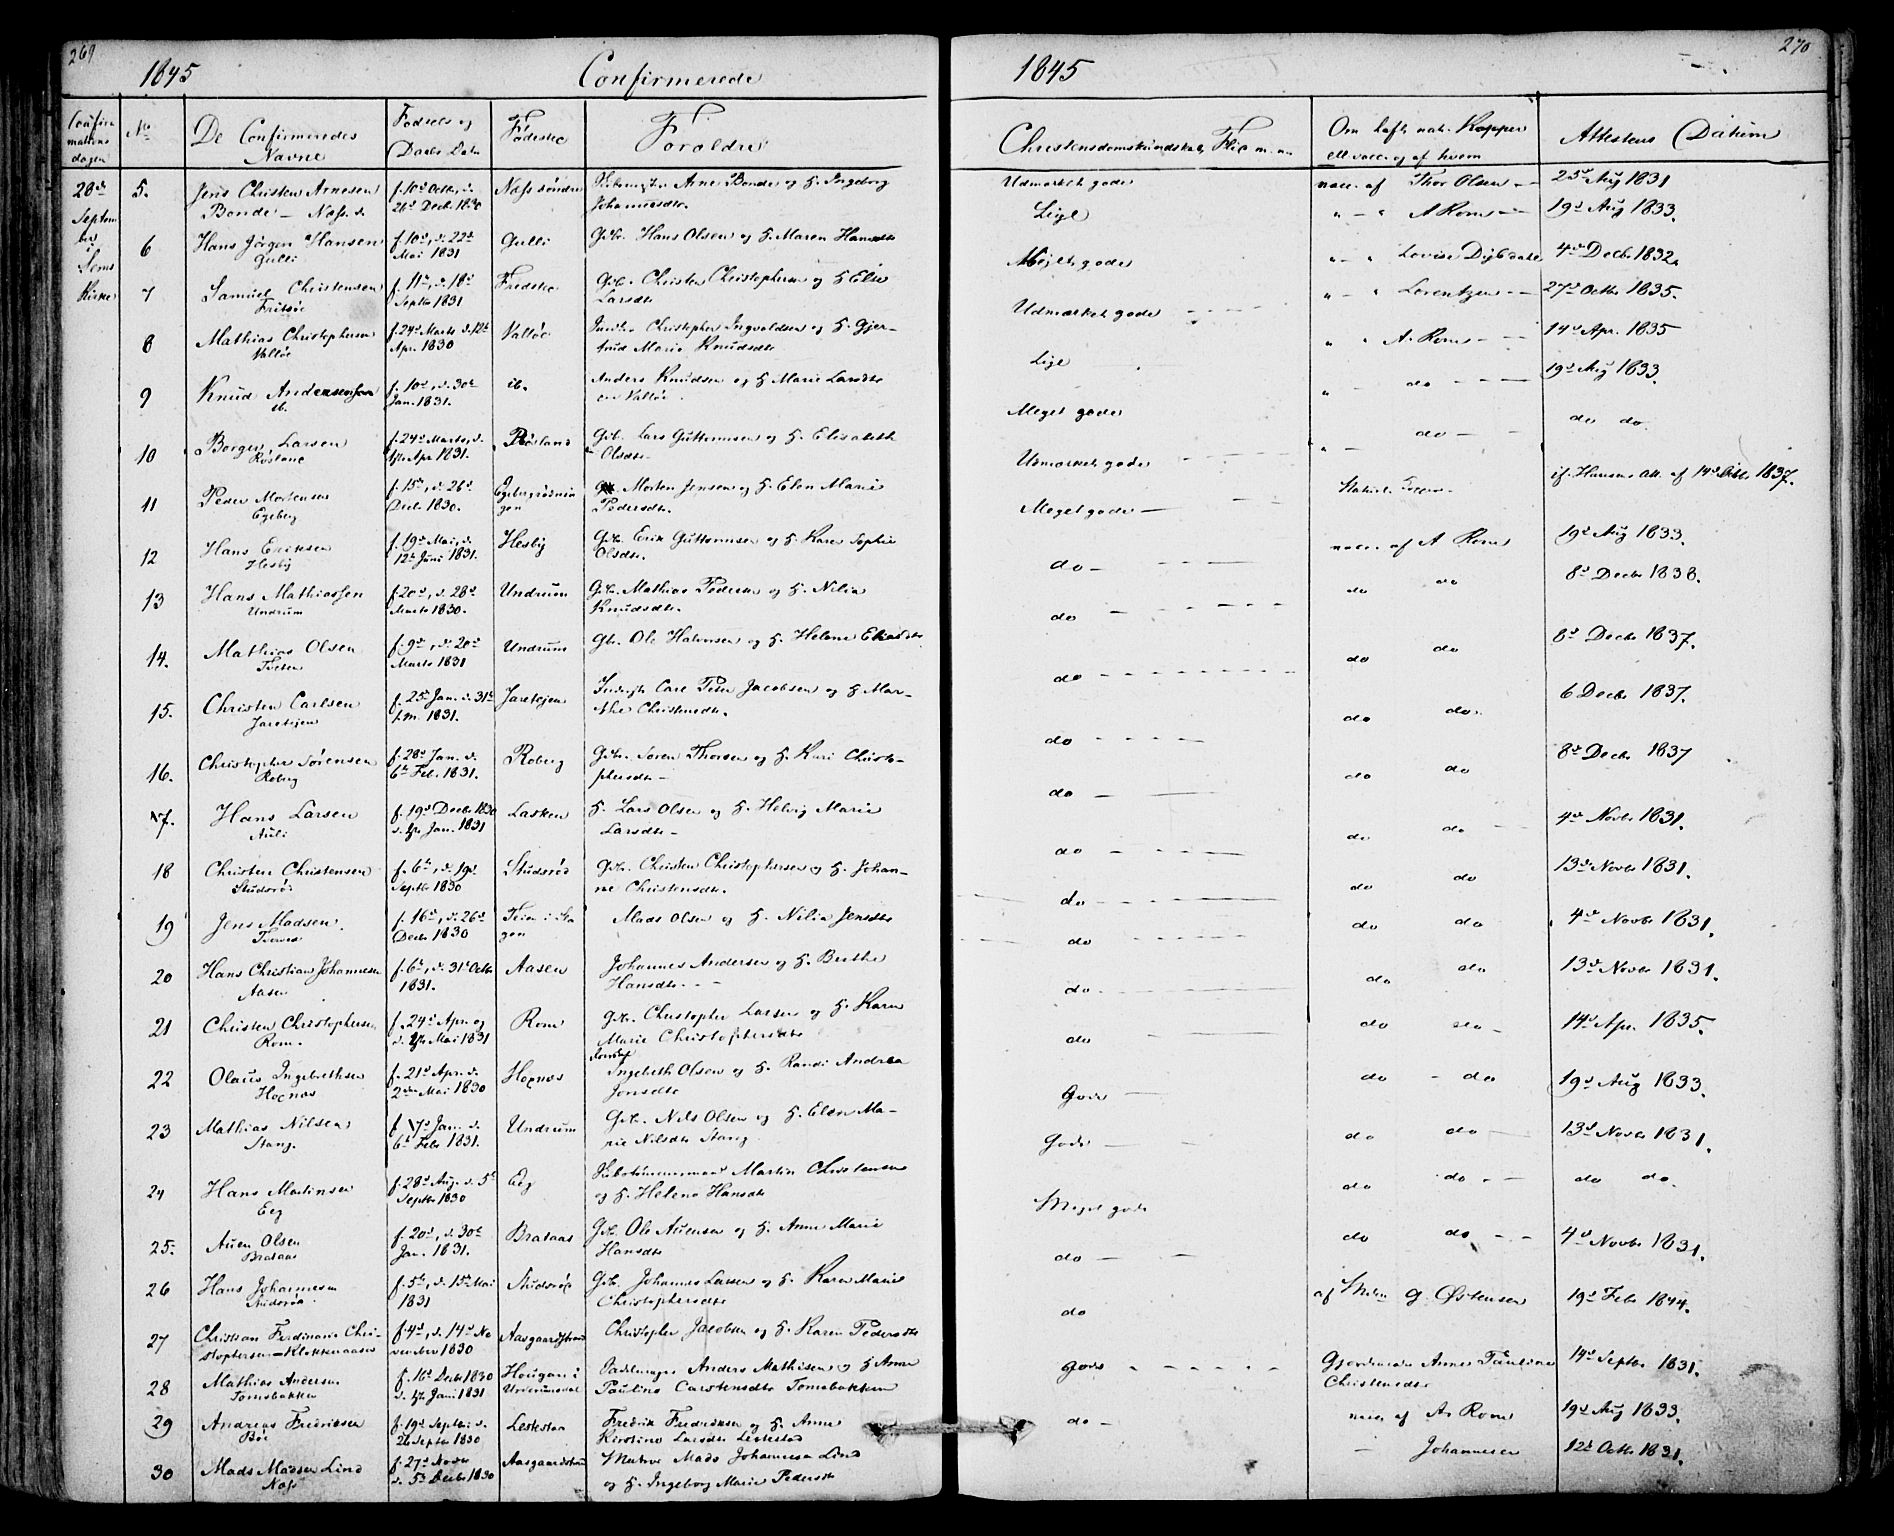 269
1845
Confirmerede
Confir-
mations
dagen
No
De Confirmeredes
Navne
Fødsels og
Daabs Datu
Fødested
Forældre
28de
Septem
ber
i
Sems
Kirke
5.
Jens Christen Arnesen
Bonde - Næss. d.
f. 10d Octb., d.
26d Decb. 1830
Næss søndre
Arne Bonde og H. Ingeborg
Johannesdtr.
6
Hans Jörgen Hansen
Gulli
f. 10d, d. 22d
Mai 1831
Gulli
Gbr. Hans Olsen og H. Maren Hansdtr
7
Samuel Christensen
Fritsöe
f. 11t, d. 18d
Septbr 1831
Gbr. Christen Christophersen og H Else
Larsdtr
8
Mathias Christophersen
Valløe
f. 24d Marts d. 12t
Apr. 1830
Valløe
Christopher Ingvoldsen og H. Gjer-
trud Marie Knudsdtr
9
Knud Andersen
ib.
f. 10d, d. 30t
Jan. 1831.
ib.
Anders Knudsen og H Marie Larsdtr
Valløe
10
Borger Larsen
Røsland
f. 24d Marts, d.
Apr 1831.
Røsland
Gbr. Lars Guttormsen og H. Elisabeth
Olsdtr
11
Peder Mortensen
Egeberg
f. 15d, d. 26d
Decb. 1830.
Morten Jensen og H. Elen Marie
Pedersdtr.
12
Hans Eriksen
Hesby
f. 19d Mai, d.
12t Juni 1831.
Hesby
Gbr. Erik Guttormsen og H. Karen Sophie
Olsdtr.
13
Hans Mathiassen
Undrum
f. 20d, d. 28d
Marts 1830.
Undrum
Gbr. Mathias Pedersen og H. Nilia
Knudsdtr.
14.
Mathias Olsen
Tveten
f. 9d, d. 20d
Marts 1831
Undrum
Gbr. Ole Halvorsen og H. Helene Eliasdtr
15.
Christen Carlsen
Jaretejen
f. 25d Jan. d. 31t
s.m. 1831.
Jaretejen
Carl Peter Jacobsen og H Mar-
the Christensdtr.
16.
Christopher Sörensen
Roberg
f. 28d Jan. d.
6t Feb. 1831.
Roberg
Gbr. Søren Thorsen og H. Kari Christo-
phersdtr
17.
Hans Larsen
Auli
f. 19d Decbr 1830
d. Jan. 1831
Lasken
H. Lars Olsen og H. Helvig Marie
Larsdtr
18
Christen Christensen
Studsrød
f. 6t, d. 19d
Septbr 1830
Studsrød
Gbr. Christen Christophersen og H. Johan-
ne Christensdtr.
19
Jens Madsen
f. 16d, d. 26d
Decb. 1830
Mads Olsen og H. Nilia Jensdtr
20
Hans Christian Johannesen
Aasen
f. 6t, d. 31t Octbr
1831.
Aasen
Johannes Andersen og H. Berthe
Hansdtr.
21
Christen Christophersen
Rom.
f. 24d Apr. og
d. Mai 1831
Rom
Gbr. Christopher Larsen og H. Karen
Marie Christophersdtr
22
Olaus Ingebrethsen
Hognæs
f. 21d Apr. d.
2den Mai 1830
Hognæs
Ingebreth Olsen og H. Randi Andrea
Jonsdtr
23
Mathias Nilsen
Stang.
f 17d Jan. d.
6t Febr 1831.
Undrum
Gbr. Nils Olsen og H. Elen Ma-
rie Nilsdtr Stang
24
Hans Martinsen
Eeg
f. 28d Aug. d. 5t
Septbr 1830
Eeg
Martin Christensen
og H. Helene Hansdtr
25.
Auen Olsen
Brataas
f. 20d, d. 30t
Jan. 1831.
Brataas
Gbr. Ole Auensen og H. Anne Marie
Hansdtr
26
Hans Johannesen
Studsrød
f. 5t, d. 15d Mai
1831
Studsrød
Gbr. Johannes Larsen og H. Karen Marie
Christophersdtr
27
Christian Ferdinand Chri-
stophersen - Klokkeraasen
f. 4d, d. 14d No
vember 1830
Aasgaardstrand
Christopher Jacobsen og H. Karen Pedersdtr
28
Mathias Andersen
Tomsbakken
f. 16d Decbr 1830
d. Jan. 1831
Hougan i
Undrumsdal
Anders Mathisen og H Anne
Pauline Carstensdtr Tomsbakken
29
Andreas Fredriksen
Bøe
f. 19d Septbr d.
26 Septbr 1830
Leikstad
Fredrik Fredriksen og H. Anne
Kirstine Larsdtr Leikestad
30
Mads Madsen Lind
Næss
f. 27d Novbr
d. 5t Decbr 1830
Aasgaardstrand
Mads Johannesen Lind
og H. Ingeborg Marie Pedersdtr
270
1845
Christendomskundskab, Flid m. m.
Om haft nat. Kopper
ell. vacc. og af hvem
Attestens Datum
Udmærket godt
vacc. af Thor Olsen
25d Aug 1831
Lige
" - " A Rom
19d Aug 1833.
Meget godt
" - " Lovise Dybdale
4d Decbr 1832.
Udmærket godt
" - " Lorentzen
27d Octbr 1835.
Lige
" " A. Rom
14d Apr. 1835
Meget godt
" - do
19d Aug 1833.
Udmærket godt
" - do
do do.
Meget godt
if. Hansens Att. af 14d Octbr 1837.
do
vacc. af A Rom
19d Aug 1833.
do
do do
8d Decbr 1838.
do
do do
8d Decbr 1837.
do
do do
6 Decbr 1837.
do
do do
8d Decbr 1837
do
do do
4d Novbr 1831.
do
do do
13d Novbr 1831.
do
do do
4d Novbr 1831.
do
do do
13d Novbr 1831.
do
do do
14d Apr. 1835.
Godt
do - do
19d Aug 1833.
Godt
do do
13d Novbr 1831.
Meget godt
do do
do do.
do
do do
4d Novbr 1831.
do
af G. Østensen
19d Febr 1844.
godt
Gjordemoder Anne Pauline
Christensdtr
14d Septbr 1831.
do
vacc. af A. Rom
19d Aug 1833.
Johannesen
12t Octbr 1831.